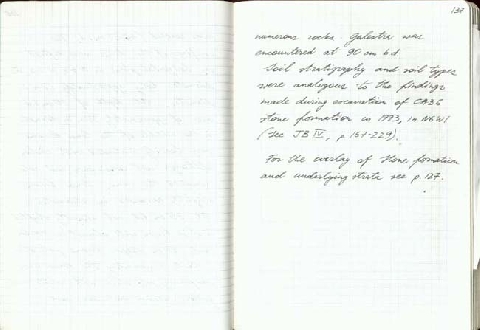 137
numerous rocks galestra was
encountered at 90 cm b.d.
Soil stratigraphy and soil types
were analogous to the findings
made during excavation of CA36
stone formation in 1993, in NGW1
(see JB IV, p 157-229).
For the overlay of stone formation
and underlying strata see p. 137.